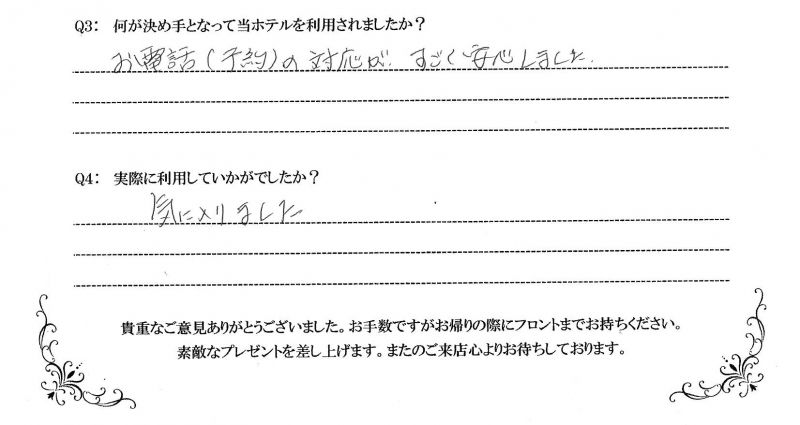 Q3: 何が決め手となって当ホテルを利用されましたか？
お電話(予約)の対応が すごく安心しました.
Q4: 実際に利用していかがでしたか？
気に入りました
貴重なご意見ありがとうございました。お手数ですがお帰りの際にフロントまでお持ちください。
素敵なプレゼントを差し上げます。またのご来店心よりお待ちしております。